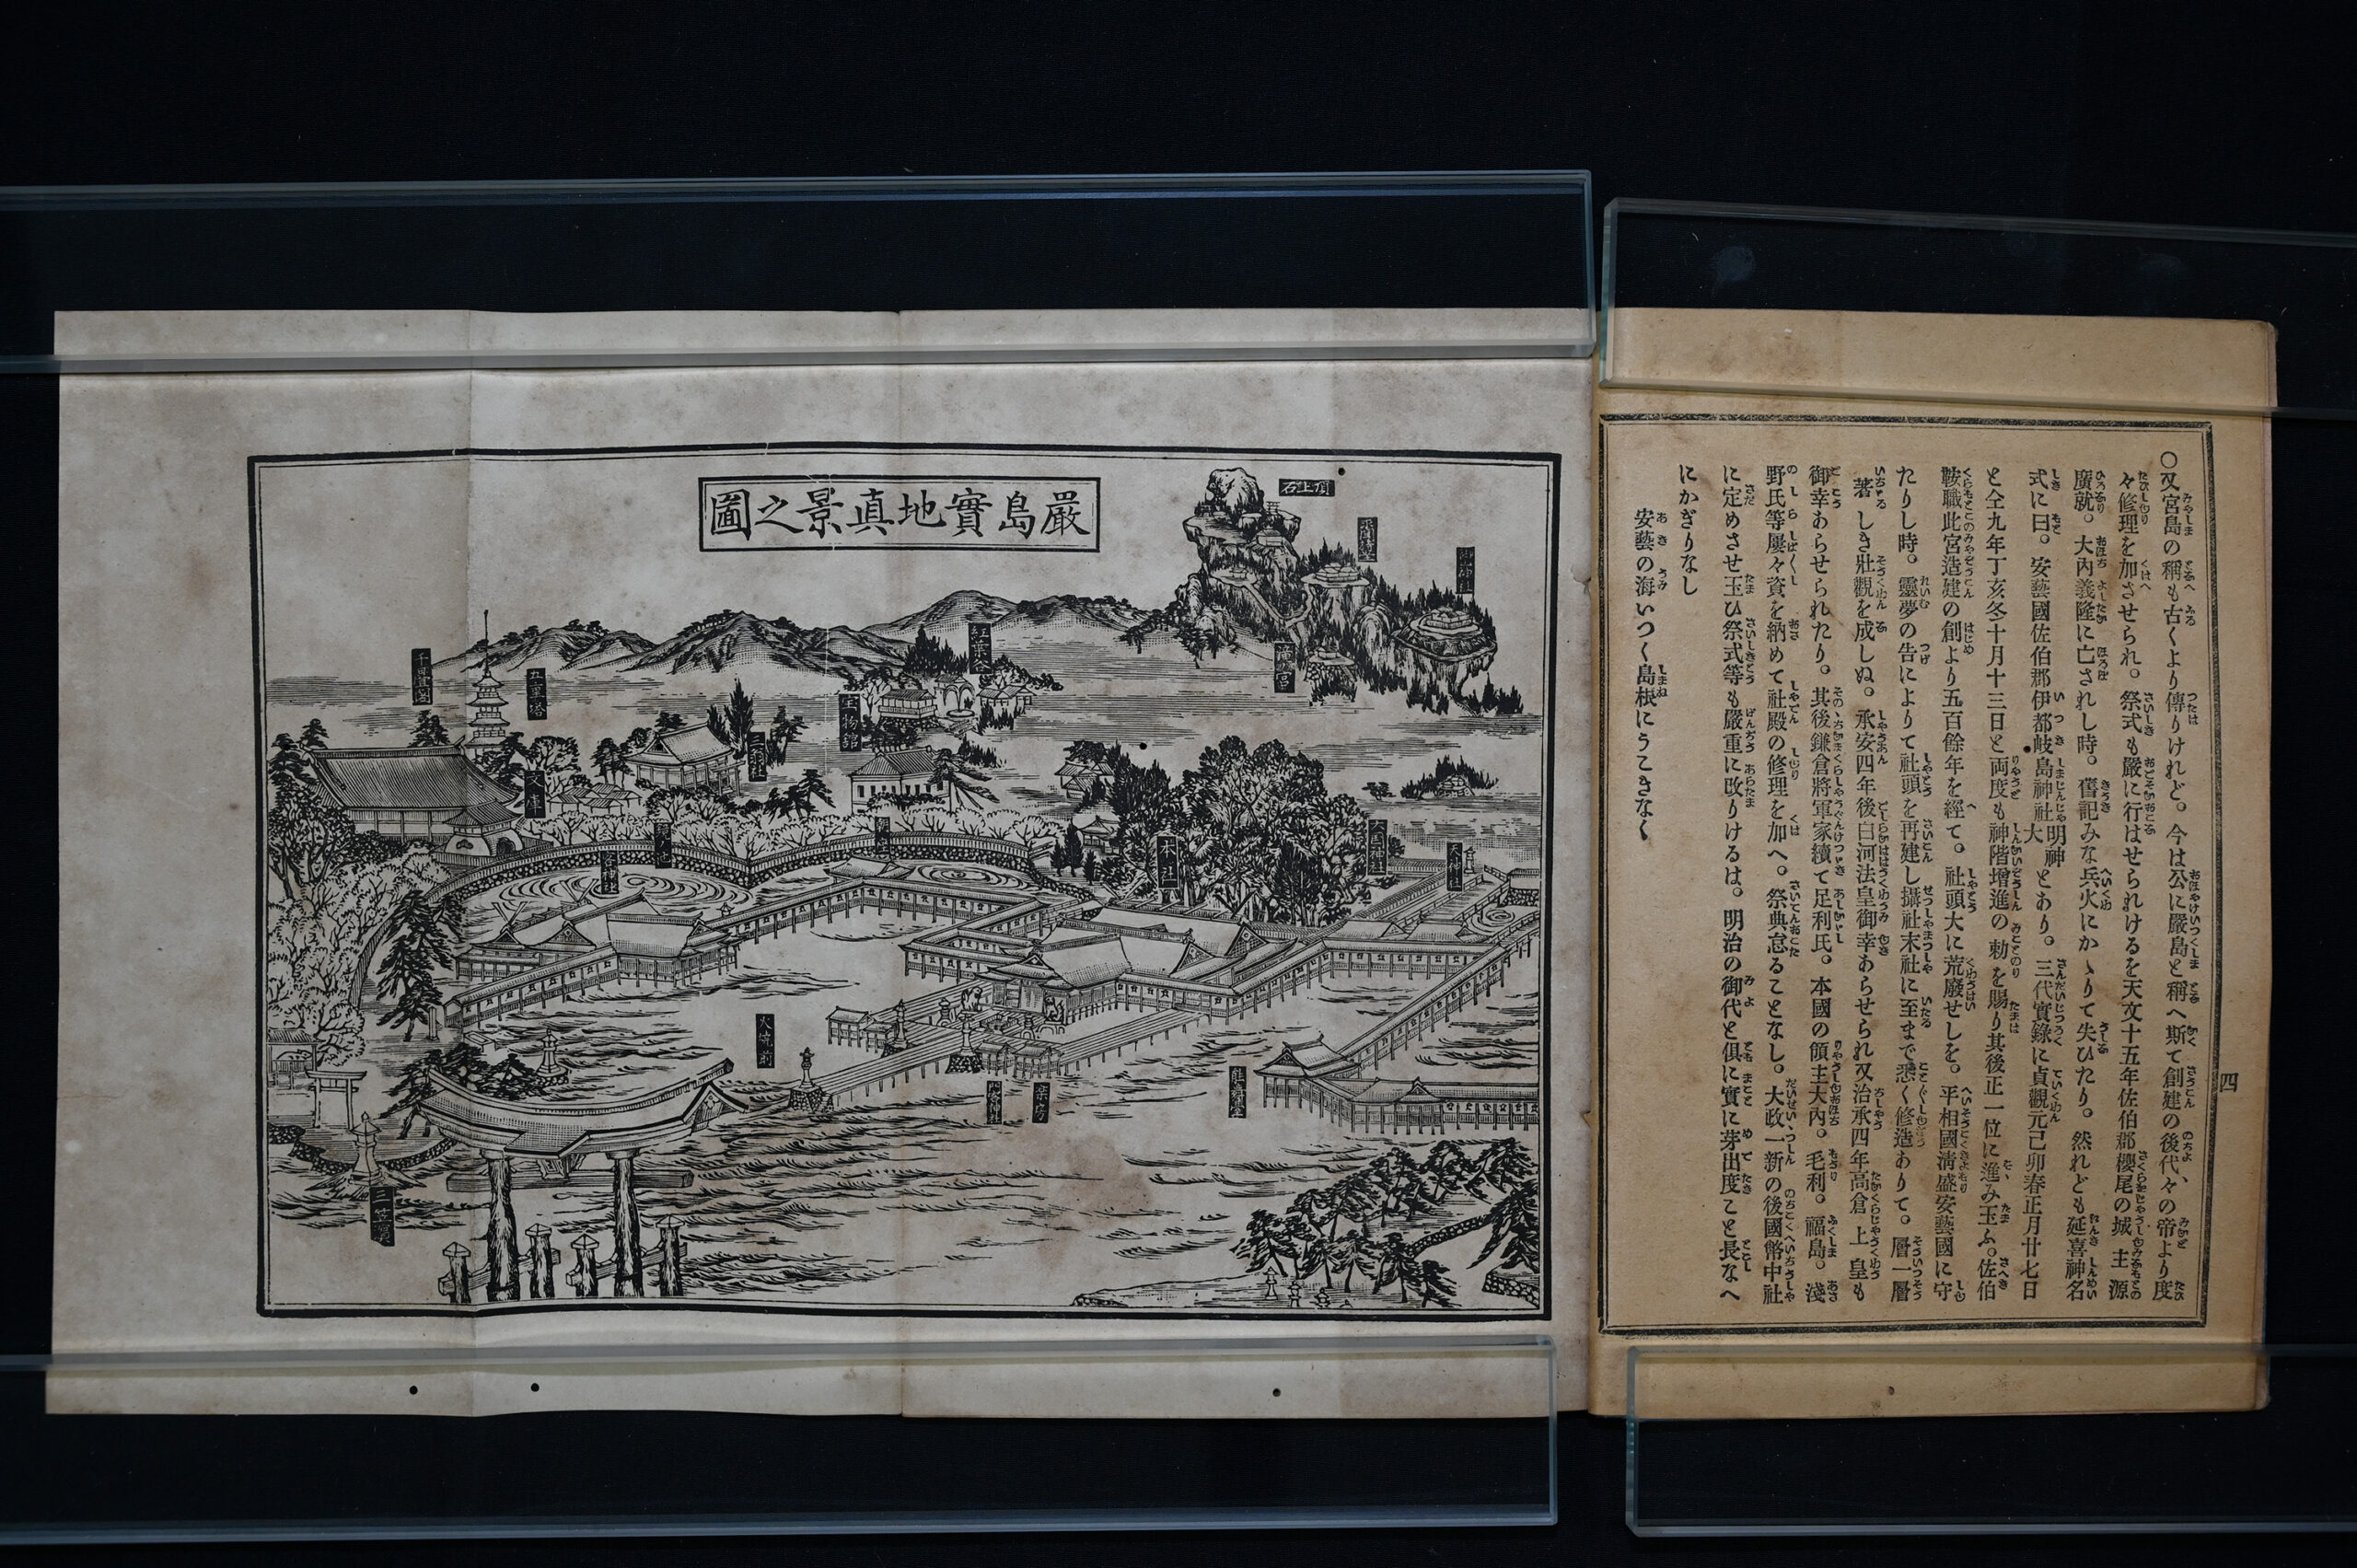 四
〇又宮島の稱も古くより傳りけれど。今は公に嚴島と稱へ斯て創建の後代々の帝より度
々修理を加させられ。祭式も嚴に行はせられけるを天文十五年佐伯郡櫻尾の城主源
廣就。大内義隆に亡されし時。舊記みな兵火にかゝりて失ひたり。然れども延喜神名
式に曰。安藝國佐伯郡伊都岐島神社明神大とあり。三代實錄に貞觀元己卯春正月廿七日
と仝九年丁亥冬十月十三日と両度も神階增進の勅を賜り其後正一位に進み玉ふ。佐伯
鞍職此宮造建の創より五百餘年を經て。社頭大に荒廢せしを。平相國淸盛安藝國に守
たりし時。靈夢の告によりて社頭を再建し攝社末社に至まで悉く修造ありて。層一層
著しき壯觀を成しぬ。承安四年後白河法皇御幸あらせられ又治承四年高倉上皇も
御幸あらせられたり。其後鎌倉將軍家續て足利氏。本國の領主大內。毛利。福島。淺
野氏等屢々資を納めて社殿の修理を加へ。祭典怠ることなし。大政一新の後國幣中社
に定めさせ玉ひ祭式等も嚴重に改りけるは。明治の御代と俱に實に芽出度こと長なへ
にかぎりなし
安藝の海いつく島根にうこきなく
嚴島實地真景之圖
頂上石
紅葉谷
千疊閣
五重塔
文庫
本社
大國神社
天神社
火燒前
樂房
能舞臺